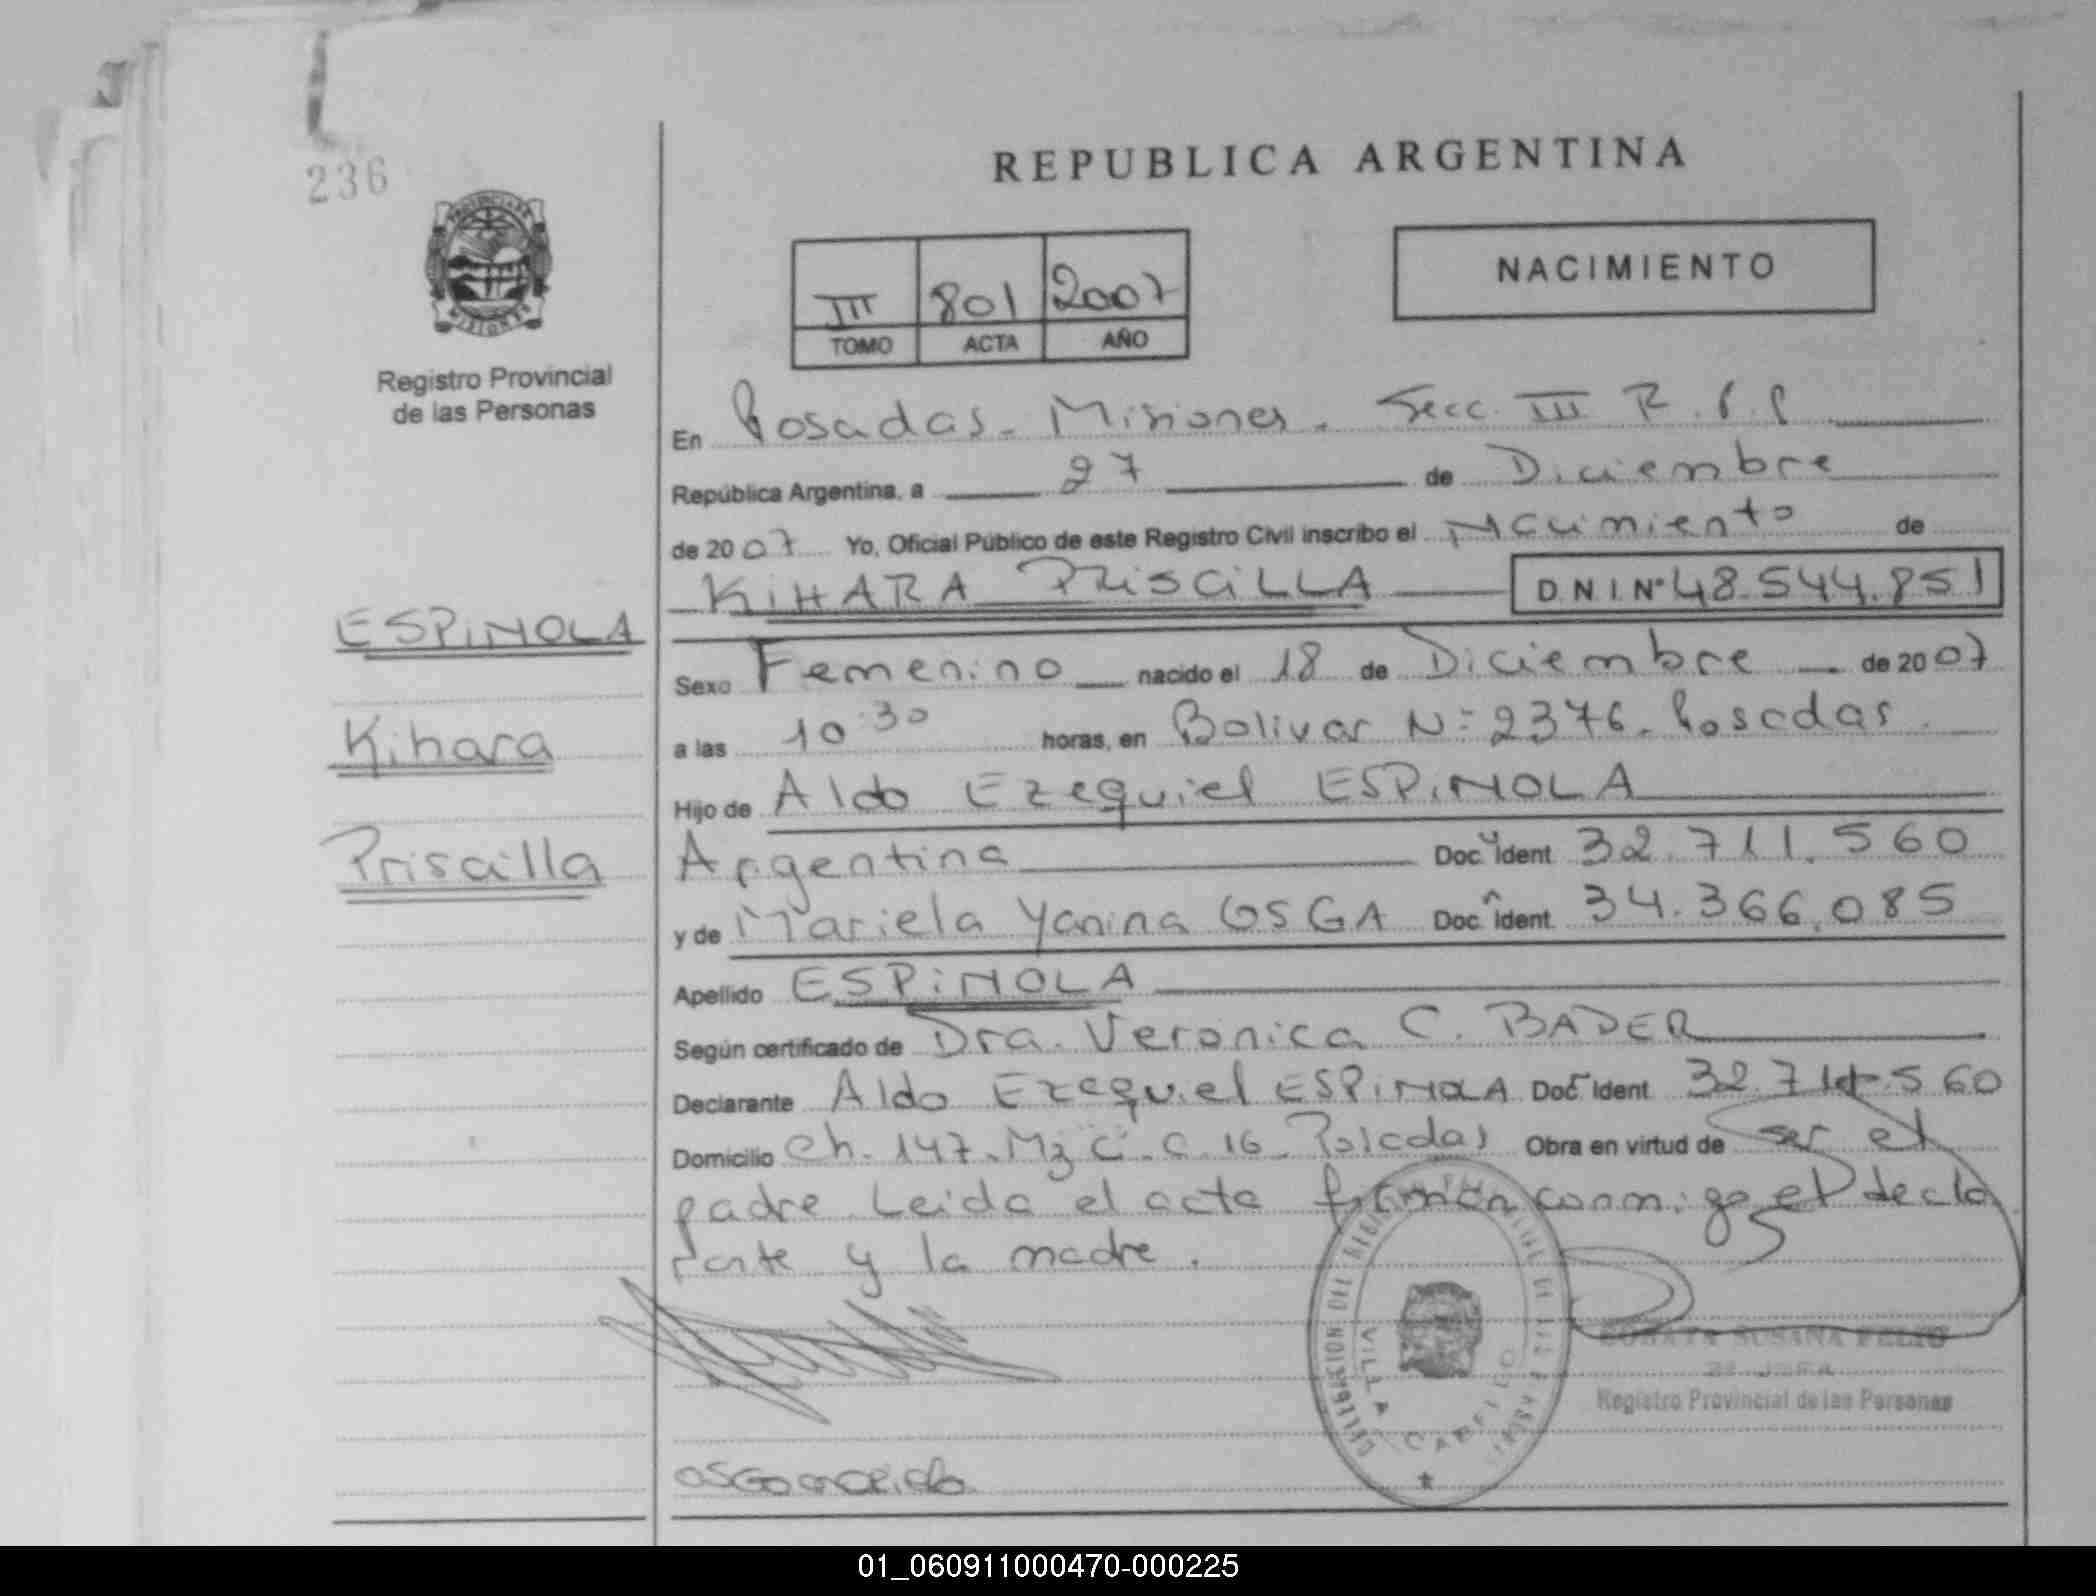 236
REPUBLICA ARGENTINA
NACIMIENTO
III 801 2007
TOMO ACTA AÑO
Registro Provincial
de las Personas
En Posadas - Misiones. Secc. III R.P.P
República Argentina, a 27 de Diciembre
de 2007 Yo, Oficial Público de este Registro Civil inscribo el Nacimiento de
KiHARA PRiSCiLLA D.N.I.Nº 48.544.851
ESPiNOLA
Kihara
Priscilla
Sexo Femenino nacido el 18 de Diciembre de 2007
a las 10:30 horas, en Bolivar Nº 2376. Posadas.
Hijo de Aldo Ezequiel ESPiNOLA
Argentina Doc. Ident. 32.711.560
y de Mariela Yanina OSGA Doc. Ident. 34.366.085
Apellido ESPiNOLA
Según certificado de Dra. Veronica C. BADER
Declarante Aldo Ezequiel ESPiNOLA Doc. Ident. 32.711.560
Domicilio Ch. 147. Mz C. C. 16. Posadas Obra en virtud de ser el
padre. Leida el acta firman conmigo el decla
rante y la madre.
DELEGACION DEL REGISTRO PROVINCIAL DE LAS PERSONAS
VILLA CABELLO
SUSANA FELIO
Registro Provincial de las Personas
01_060911000470-000225